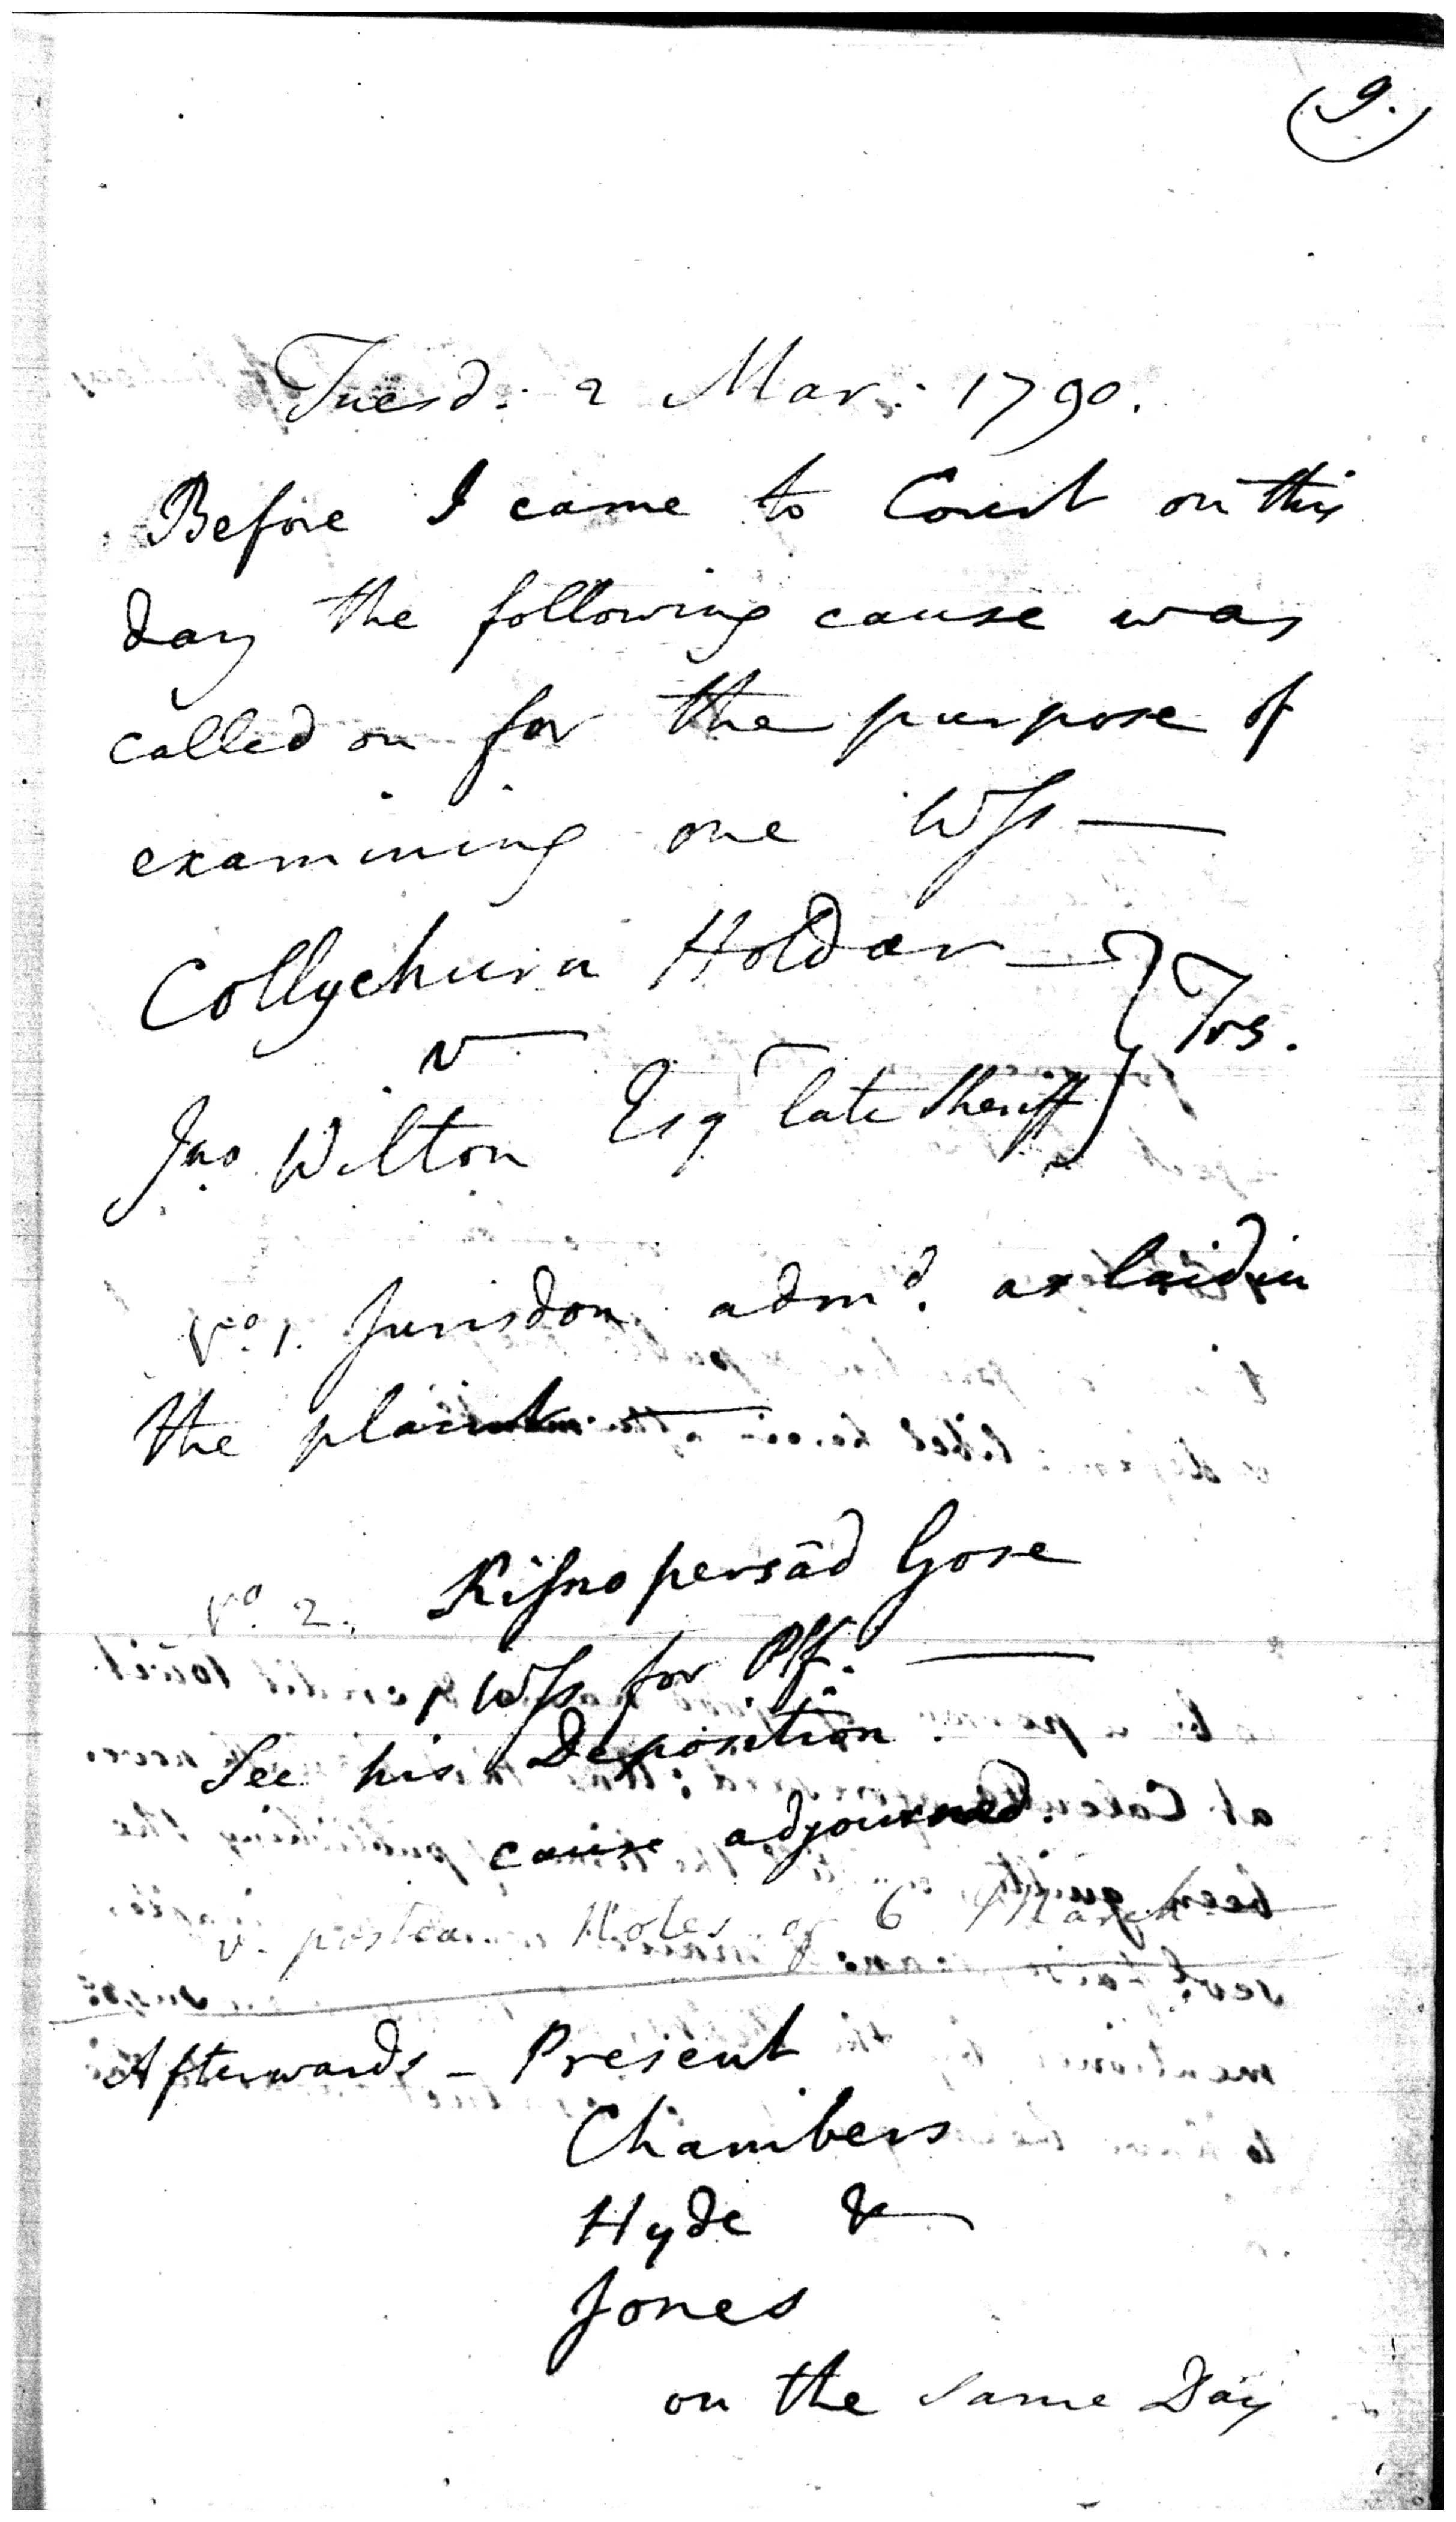 (9.)
Tuesd: 2 Mar: 1790.
Before I came to Court on this
day the following cause was
called on for the purpose of
examining one Wſs —
Collychurn Holdar — } Trs.
v —
Jno. Wilton Esq late Sheriff
No. 1. Jurisdon admd. as laid in
the plaint —
No. 2. Kiſnopersād Gose
1 Wſs for Plf. —
See his Deposition.
cause adjourned.
v. postea. Notes of 6 March —
Afterwards — Present
Chambers
Hyde &
Jones
on the same Day